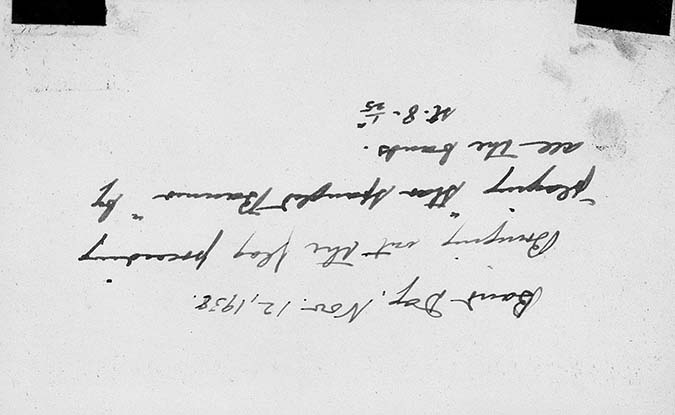 Band Day, Nov. 12, 1938.
Bringing out the flag preceding
"playing "Star Spangled Banner" by
all the bands.
f. 8. 1/25"